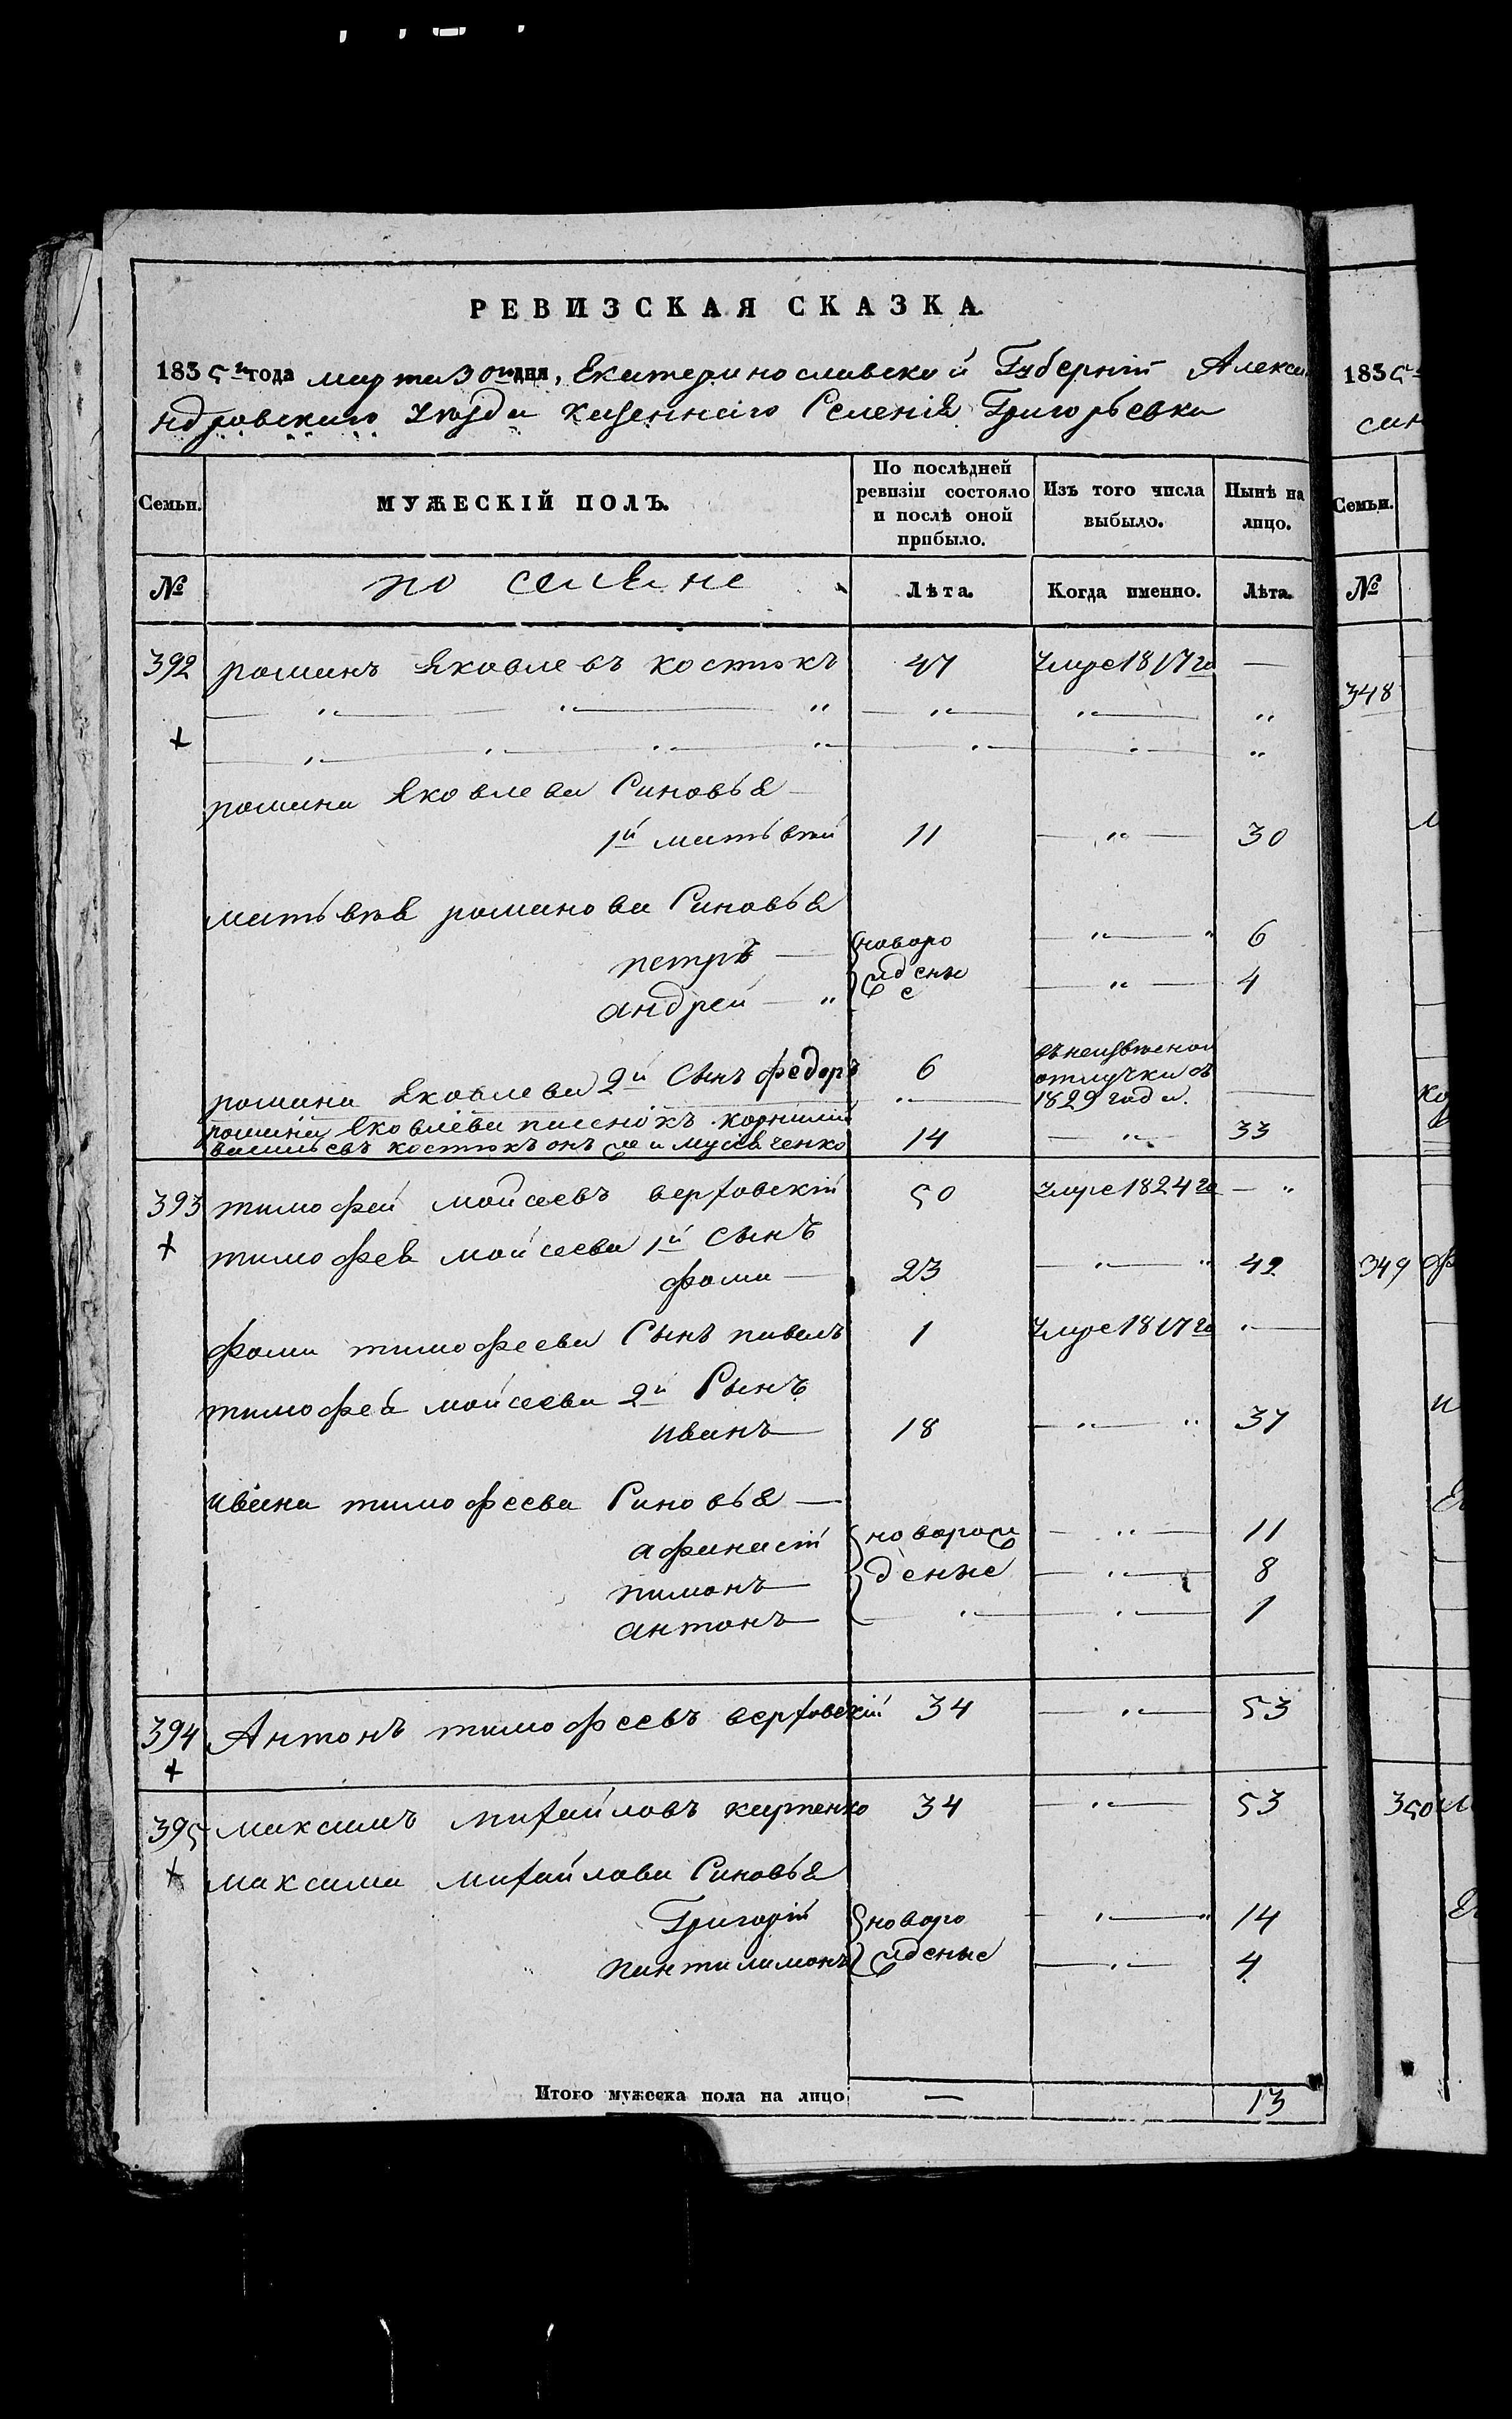 РЕВИЗСКАЯ СКАЗКА.
1835 го года марта 30 го дня, Екатеринославской Губерніи Алекса
ндровскаго уѣзда казеннаго Селенія Григорьевки
Семьи. МУЖЕСКІЙ ПОЛЪ. По послѣдней ревизіи состояло и послѣ оной прибыло. Изъ того числа выбыло. Нынѣ на лицо.
№ Лѣта. Когда именно. Лѣта.
392 романъ Яковлевъ костюкъ 47 умре 1817 го —
романа Яковлева Синовья
1й матьвѣй 11 — 30
матьвѣя романова Синовья
петръ — новоро — 6
андрей — жденые — 4
романа Яковлева 2й Сынъ федоръ 6 въ неизвѣсной отлучки съ 1829 года. —
романа Яковлева пасенокъ корнилий
васильевъ костюкъ онъ же и мусевченко 14 — 33
393 тимофей мойсеевъ верховскій 50 умре 1824 го —
тимофея мойсеева 1й Сынъ
фома — 23 — 42
фомы тимофеева Сынъ павелъ 1 умре 1817 го —
тимофея мойсеева 2й Сынъ
иванъ — 18 — 37
ивана тимофеева Синовья —
афанасій новорож — 11
пимонъ — деные — 8
антонъ — — 1
394 Антонъ тимофеевъ верховскій 34 — 53
395 максимъ михайловъ карпенко 34 — 53
максима михайлова Синовья
Григорій новоро — 14
пантилимонъ жденые — 4
Итого мужеска пола на лицо — 13
1835
Семьи.
№
348
349
350